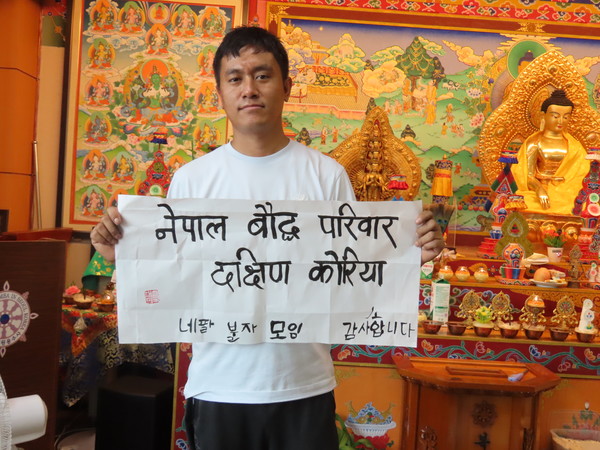 नेपाल बौद्ध परिवार
दक्षिण कोरिया
네팔 분자 모임 감사합니다